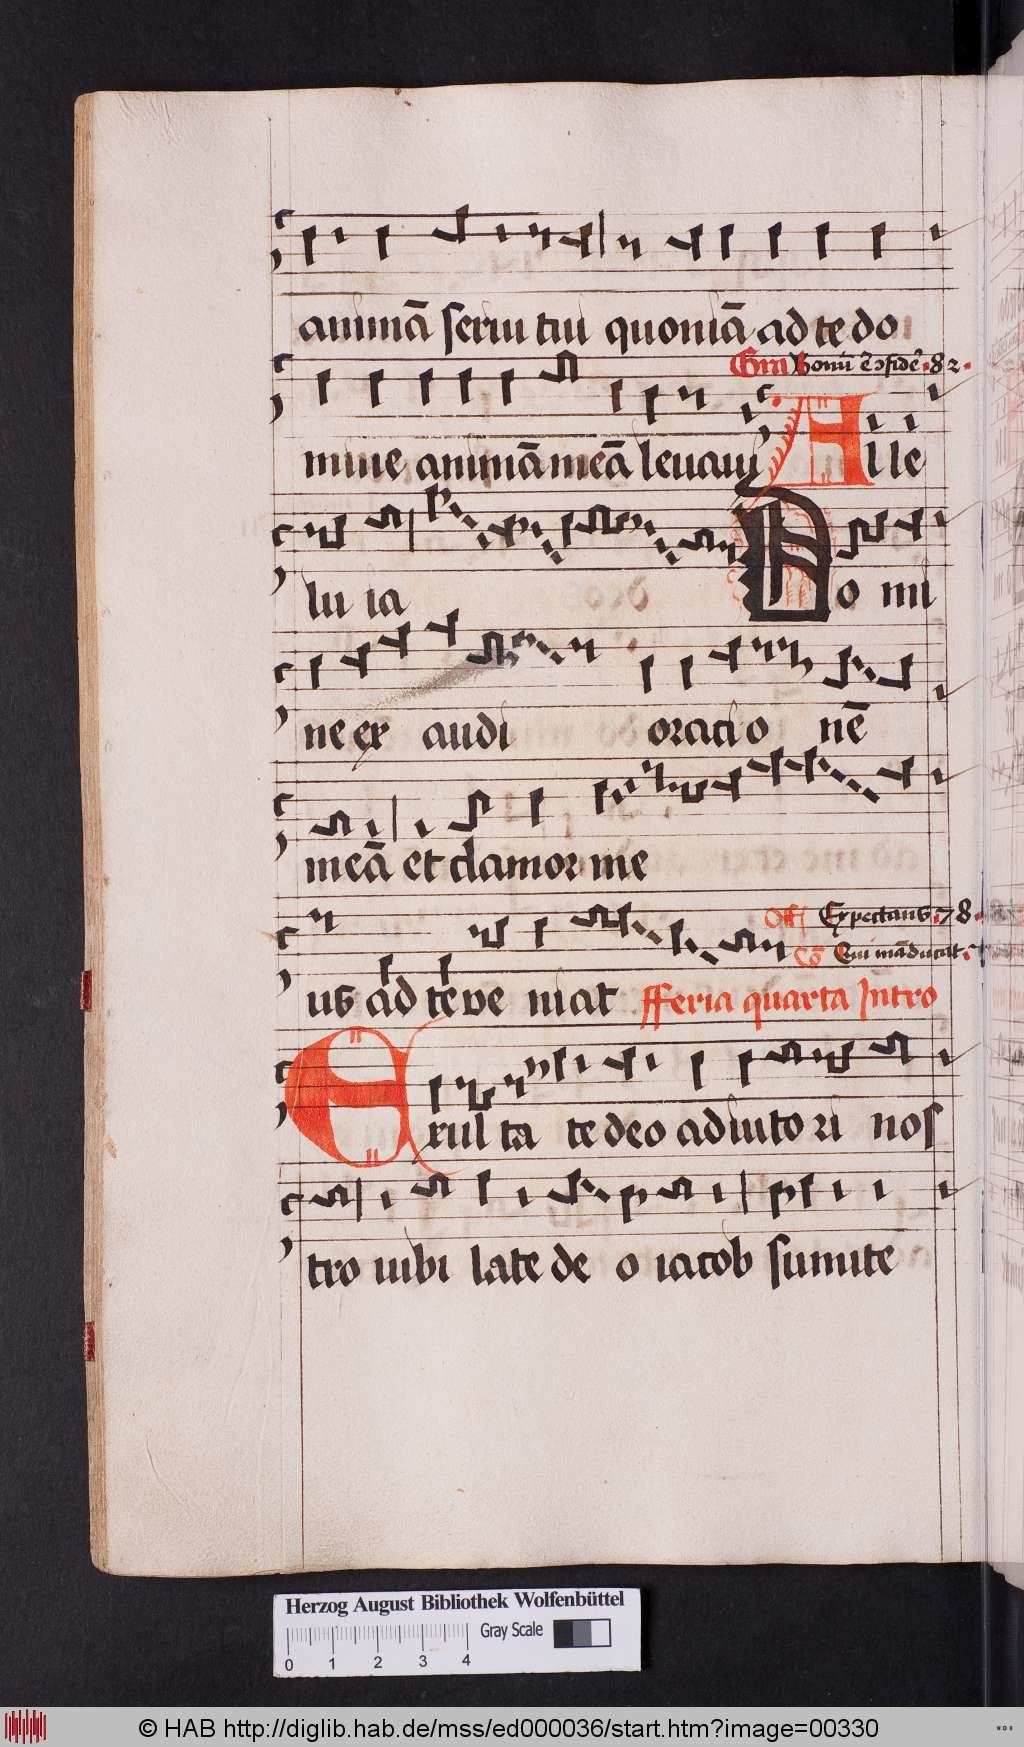 animā serui tui quoniā ad te do
Gra Bonū ē ɔfidēˀ . 82 .
mine animā meā leuaui Alle
lu ia Domi
ne ex audi oratio nē
meā et clamor me
us ad te ve niat
Off Expectans . 78 .
Cō Qui māducat .
fferia quarta Intro
Exul ta te deo adiuto ri nos
tro iubi late de o iacob sumite
Herzog August Bibliothek Wolfenbüttel
Gray Scale
0 1 2 3 4
© HAB http://diglib.hab.de/mss/ed000036/start.htm?image=00330